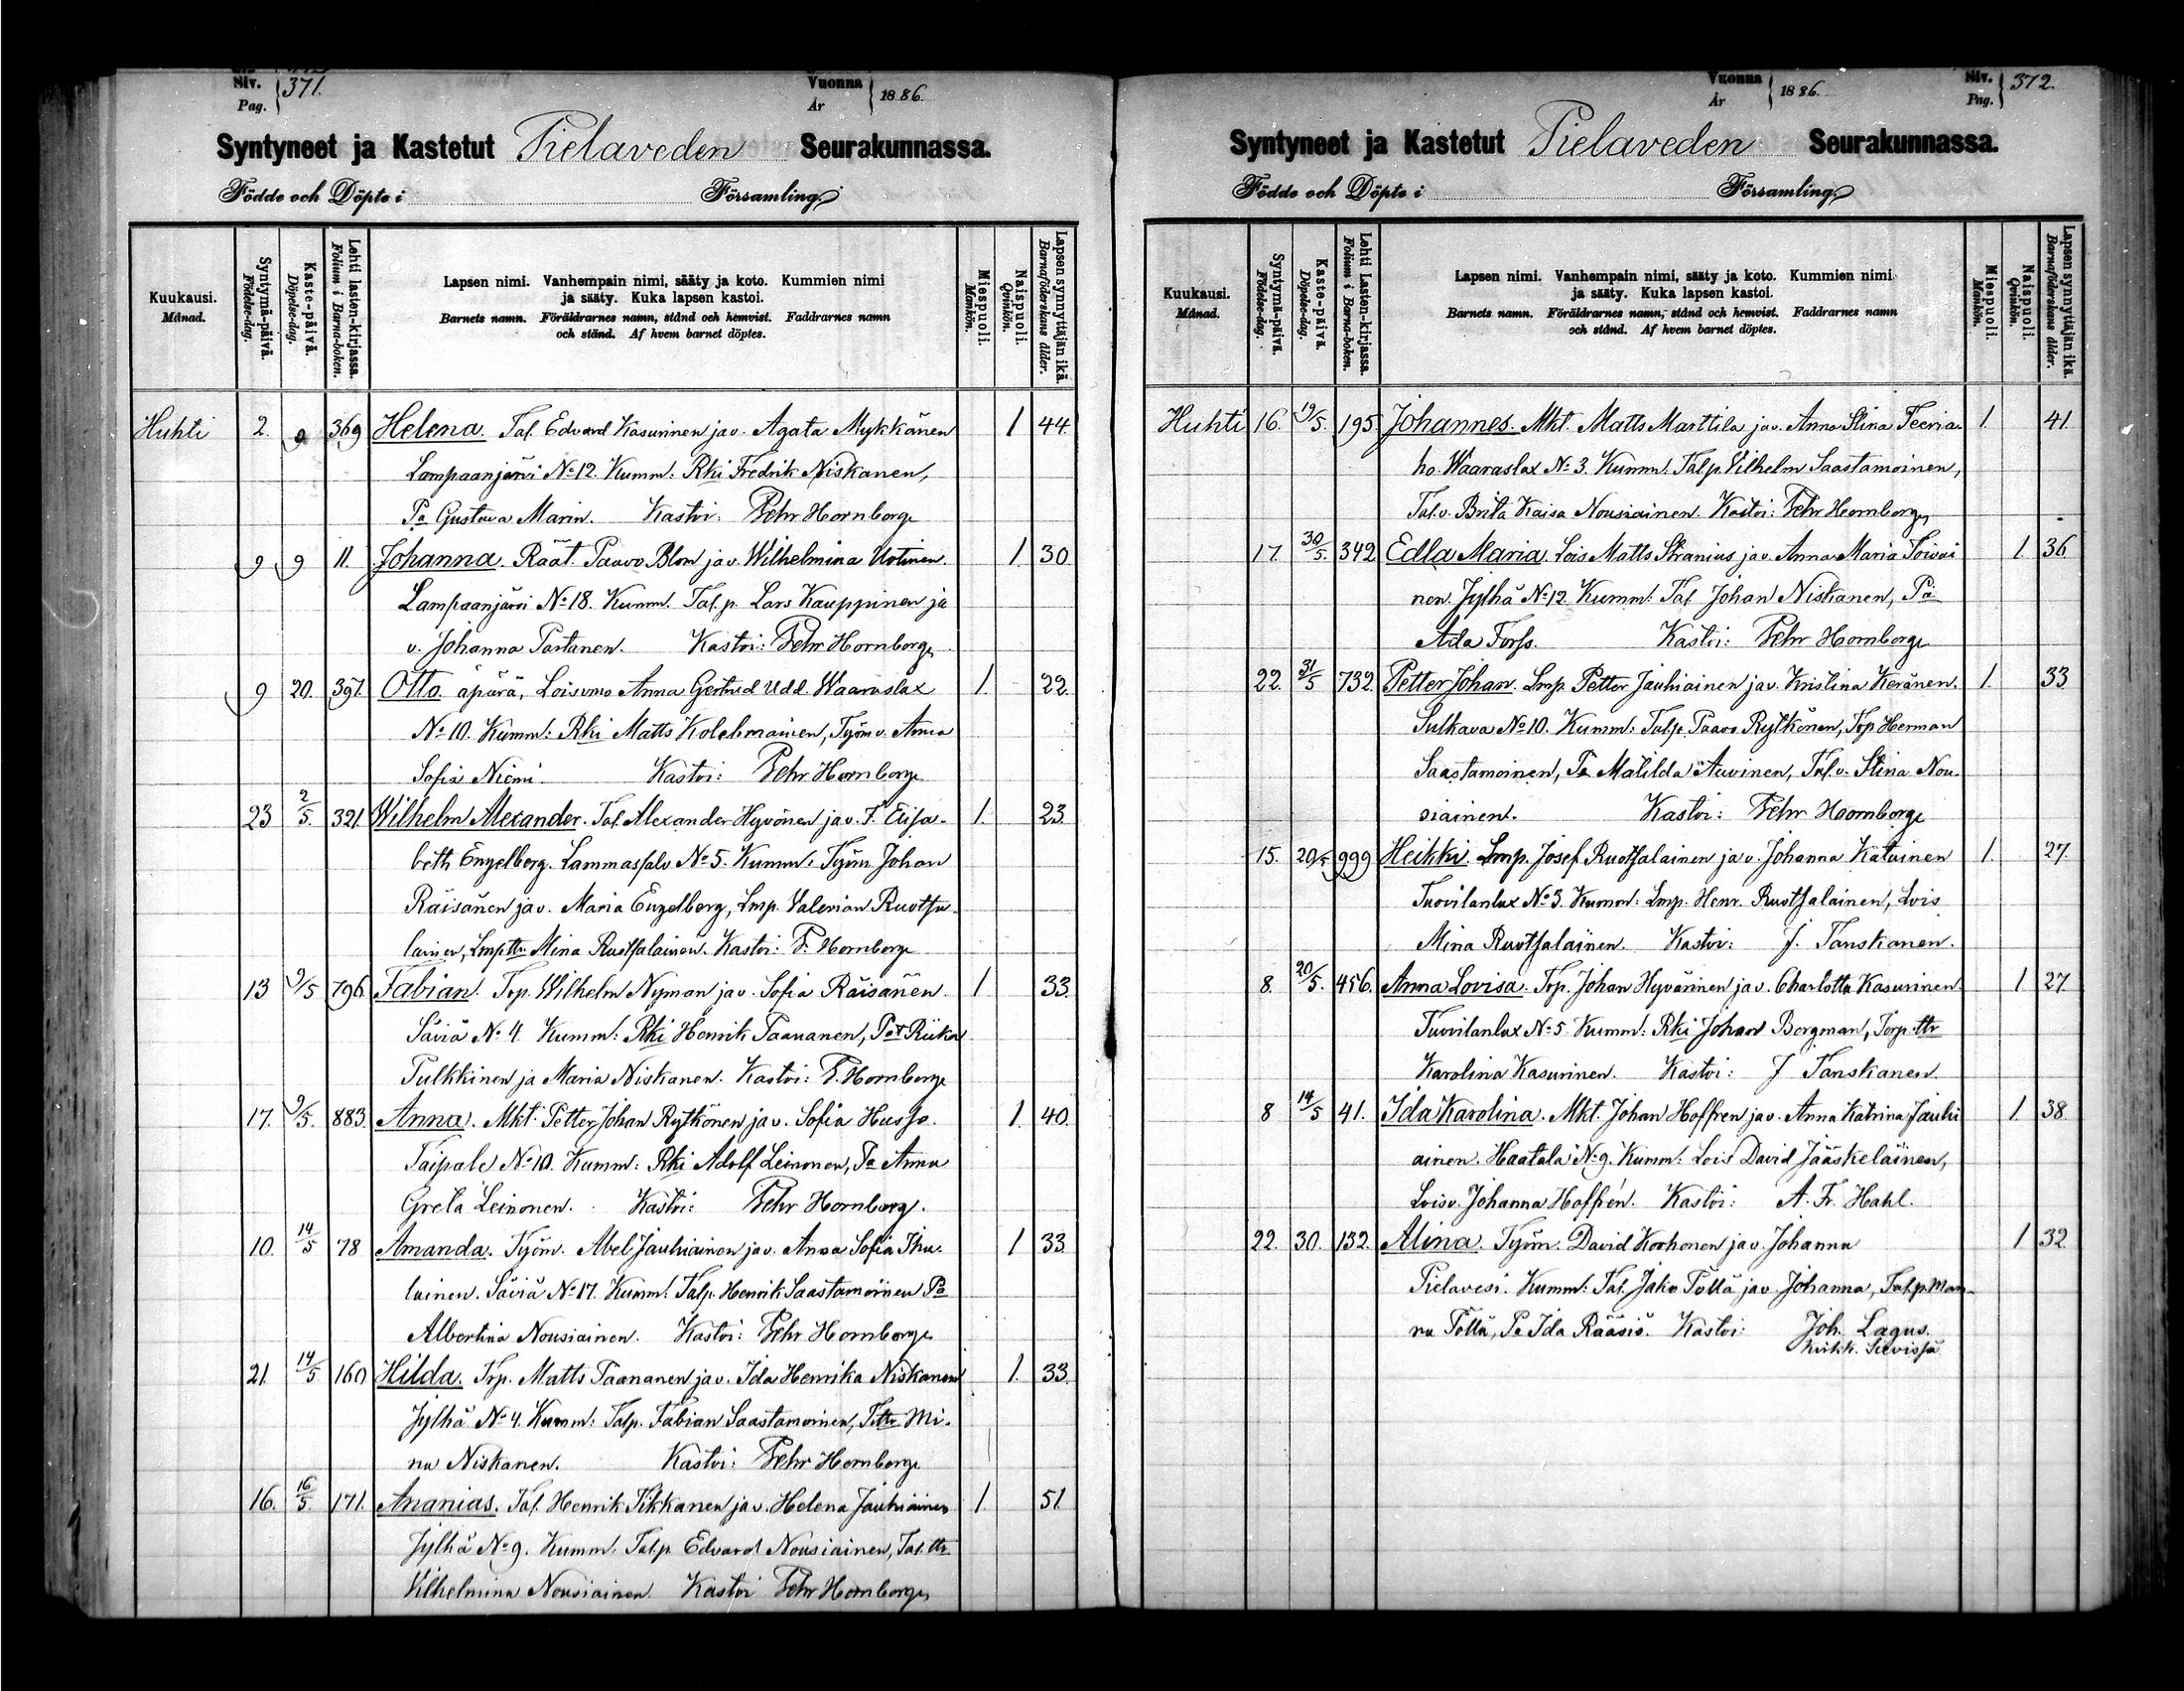 Siv. Pag. 371.
Vuonna År 1886.
Syntyneet ja Kastetut Pielaveden Seurakunnassa.
Födde och Döpte i Församling.
Kuukausi. Månad.
Syntymä-päivä. Födelse-dag.
Kaste-päivä. Döpelse-dag.
Lehti lasten-kirjassa. Folium i Barna-boken.
Lapsen nimi. Vanhempain nimi, sääty ja koto. Kummien nimi
ja sääty. Kuka lapsen kastoi.
Barnets namn. Föräldrarnes namn, stånd och hemvist. Faddrarnes namn
och stånd. Af hvem barnet döptes.
Miespuoli. Mankön.
Naispuoli. Qvinkön.
Lapsen synnyttäjän ikä. Barnaföderskans ålder.
Huhti 2. 9 369 Helena. Tal. Edvard Kasurinen ja v. Agata Mykkänen 1 44.
Lampaanjärvi No 12. Kumm. Rki Fredrik Niskanen,
Pa Gustava Marin. Kastoi: Fehr Hornborg
9 9 11. Johanna. Räät. Paavo Blom ja v. Wilhelmina Uotinen. 1 30.
Lampaanjärvi No 18. Kumm. Tal. p. Lars Kauppinen ja
v. Johanna Partanen. Kastoi: Fehr Hornborg
9 20. 397. Otto. äpärä, Loisvmo Anna Gertrud Udd. Waaraslax 1. 22.
No 10. Kumm: Rki Matts Kolehmainen, Työm v. Anna
Sofia Niemi. Kastoi: Fehr Hornborg
23 2/5. 321. Wilhelm Alexander. Tal. Alexander Hyvönen ja v. F. Elisa- 1. 23.
beth Engelberg. Lammassalo No 5. Kumm: Työm Johan
Räisänen ja v. Maria Engelberg, Lmp. Valerian Ruotsa-
lainen, Lmp ttr Mina Ruotsalainen. Kastoi: F. Hornborg
13 9/5 796. Fabian. Trp. Wilhelm Nyman ja v. Sofia Räisänen. 1 33.
Säviä No 4. Kumm: Rki Henrik Paananen, Pat Riika
Pulkkinen ja Maria Niskanen. Kastoi: F. Hornborg
17. 9/5. 883. Anna. Mkt. Petter Johan Rytkönen ja v. Sofia Husso. 1 40.
Taipale No 10. Kumm: Rki Adolf Leinonen, Pa Anna
Greta Leinonen. Kastoi: Fehr Hornborg.
10. 14/5 78 Amanda. Työm. Abel Jauhiainen ja v. Anna Sofia Thu- 1 33.
lainen. Säviä No 17. Kumm: Talp. Henrik Saastamoinen Pa
Albertina Nousiainen. Kastoi: Fehr Hornborg
21. 14/5 160 Hilda. Trp. Matts Paananen ja v. Ida Henrika Niskanen 1. 33.
Jylhä No 4. Kumm: Talp. Fabian Saastamoinen, T ttr Mi-
na Niskanen. Kastoi: Fehr Hornborg
16. 16/5. 171. Ananias. Tal. Henrik Tikkanen ja v. Helena Jauhiainen 1. 51.
Jylhä No 9. Kumm. Tal.p Edvard Nousiainen, Tal. ttr
Vilhelmina Nousiainen. Kastoi Fehr Hornborg
Siv. Pag. 372.
Vuonna År 1886.
Syntyneet ja Kastetut Pielaveden Seurakunnassa.
Födde och Döpte i Församling.
Kuukausi. Månad.
Syntymä-päivä. Födelse-dag.
Kaste-päivä. Döpelse-dag.
Lehti Lasten-kirjassa. Folium i Barna-boken.
Lapsen nimi. Vanhempain nimi, sääty ja koto. Kummien nimi
ja sääty. Kuka lapsen kastoi.
Barnets namn. Föräldrarnes namn, stånd och hemvist. Faddrarnes namn
och stånd. Af hvem barnet döptes.
Miespuoli. Mankön.
Naispuoli. Qvinkön.
Lapsen synnyttäjän ikä. Barnaföderskans ålder.
Huhti 16. 19/5. 195. Johannes. Mkt. Matts Marttila ja v. Anna Stina Teeria- 1. 41.
ho. Waaraslax No 3. Kumm: Talp. Vilhelm Saastamoinen,
Tal.v. Brita Kaisa Nousiainen. Kastoi: Fehr Hornborg
17. 30/5. 342 Edla Maria. Lois Matts Stranius ja v. Anna Maria Toivai 1. 36
nen. Jylhä No 12. Kumm: Tal. Johan Niskanen, Pa
Ada Forss. Kastoi: Fehr Hornborg
22. 31/5 732. Petter Johan. Lmp. Petter Jauhiainen ja v. Kristina Keränen. 1. 33.
Sulkava No 10. Kumm: Talp. Paavo Rytkönen, Trp Herman
Saastamoinen, Pa Matilda Auvinen, Tal.v. Stina Nou-
siainen. Kastoi: Fehr Hornborg
15. 20/5 999 Heikki. Lmp. Josef Ruotsalainen ja v. Johanna Katainen 1. 27.
Tuovilanlax No 3. Kumm: Lmp. Henr. Ruotsalainen, Lois
Mina Ruotsalainen. Kastoi: J. Tanskanen.
8. 20/5. 456. Anna Lovisa. Trp. Johan Hyvärinen ja v. Charlotta Kasurinen. 1 27.
Tuovilanlax No 5. Kumm: Rki Johan Borgman, Torp. ttr
Karolina Kasurinen. Kastoi: J Tanskanen.
8 14/5 41. Ida Karolina. Mkt. Johan Hoffren ja v. Anna Katrina Jauhi 1. 38.
ainen. Haatala No 9. Kumm: Lois David Jääskeläinen,
Lois v. Johanna Hoffrén. Kastoi: A. Fr. Hahl.
22. 30. 132. Alina. Työm. David Korhonen ja v. Johanna 1 32.
Pielavesi. Kumm: Tal. Jako Tölla ja v. Johanna, Tal.p. Man-
nu Tölla, Pa Ida Rääsiö. Kastoi: Joh. Lagus.
kirkk.